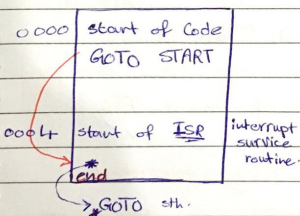 0000 start of Code
GOTO START
0004 start of ISR interrupt
survice
routine.
*
end
*GOTO sth.